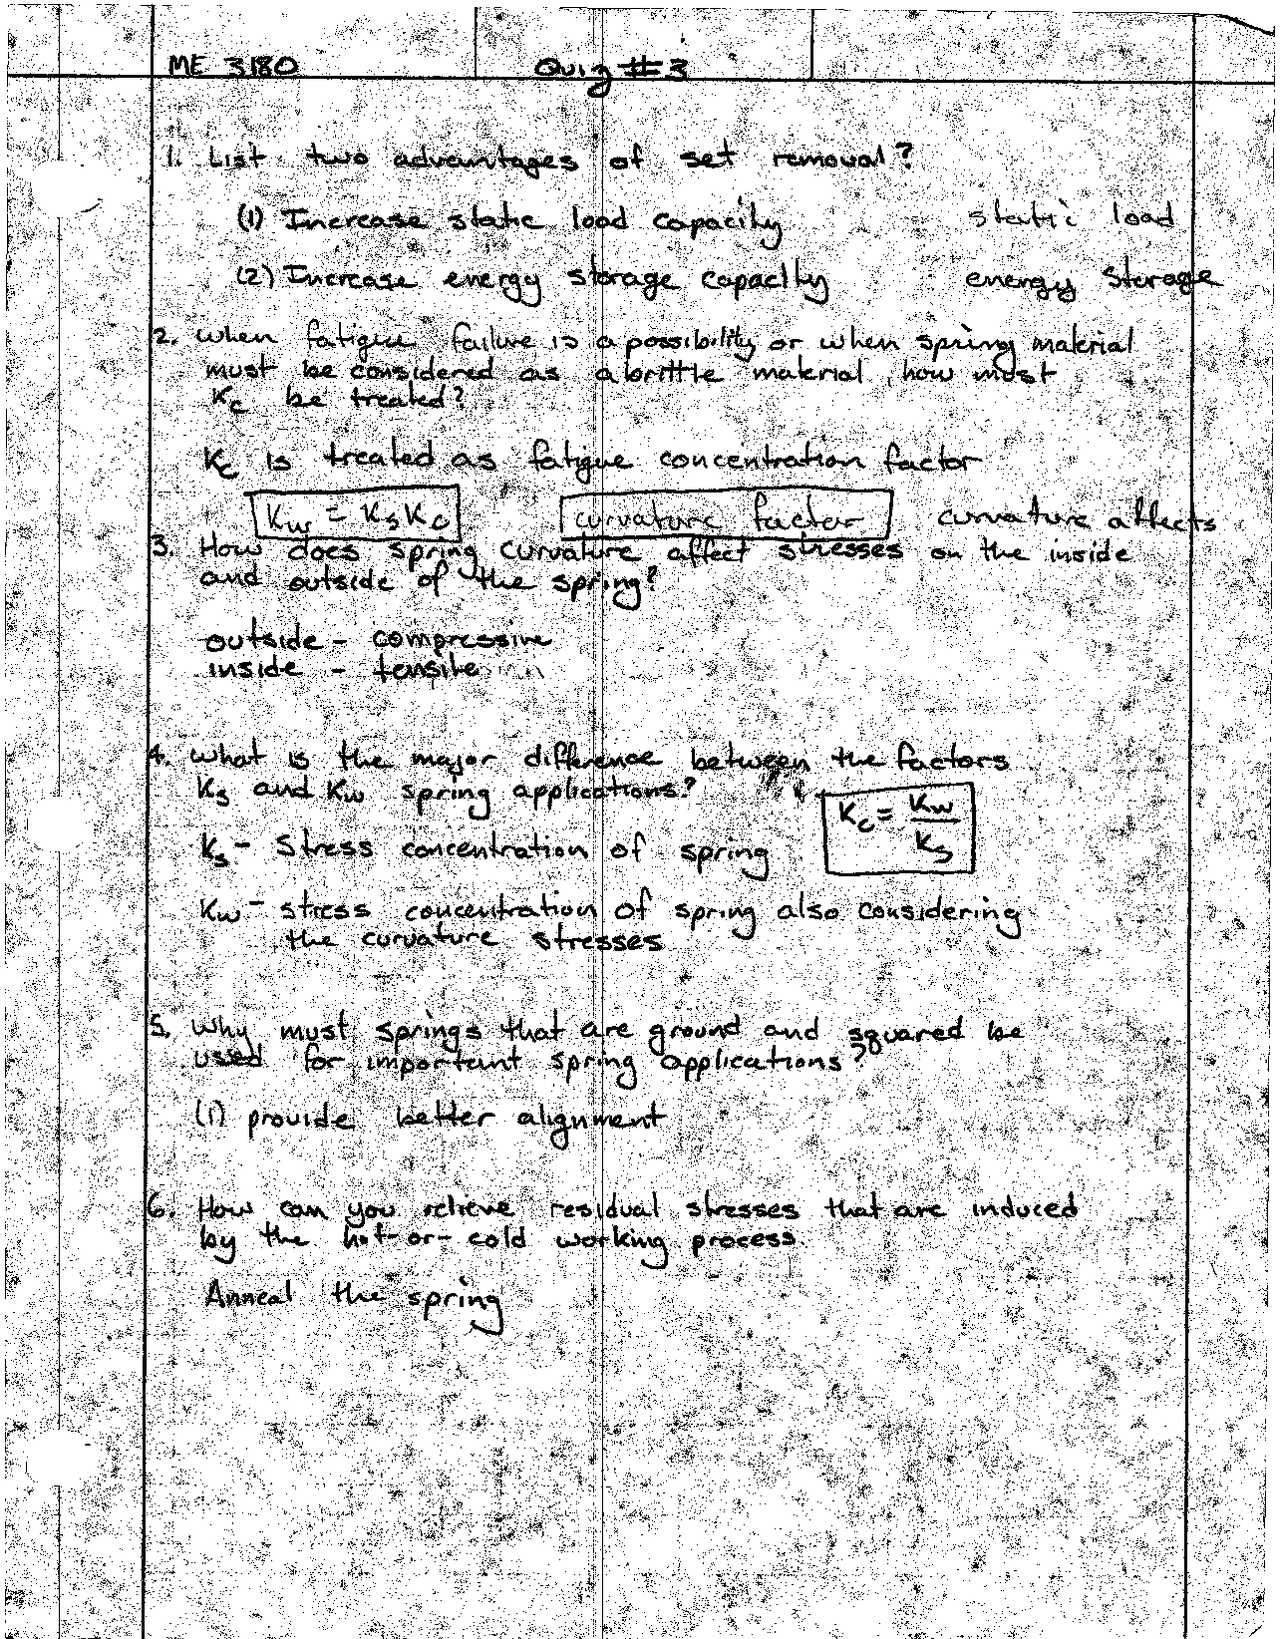 ME 3180 Quiz #3
1. List two advantages of set removal?
(1) Increase static load capacity static load
(2) Increase energy storage capacity energy storage
2. When fatigue failure is a possibility or when spring material
must be considered as a brittle material, how must
Kc be treated?
Kc is treated as fatigue concentration factor
Kw = KsKc curvature factor curvature affects
3. How does spring curvature affect stresses on the inside
and outside of the spring?
outside - compressive
inside - tensile
4. What is the major difference between the factors
Ks and Kw spring applications?
Kc = Kw/Ks
Ks - Stress concentration of spring
Kw - stress concentration of spring also considering
the curvature stresses
5. Why must springs that are ground and squared be
used for important spring applications?
(1) provide better alignment
6. How can you relieve residual stresses that are induced
by the hot-or-cold working process.
Anneal the spring